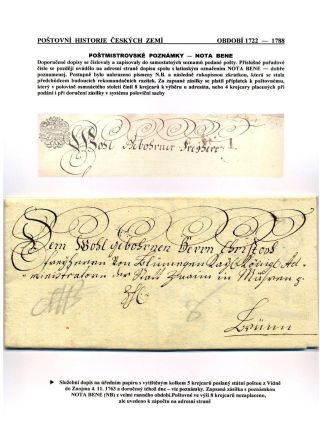 POŠTOVNÍ HISTORIE ČESKÝCH ZEMÍ OBDOBÍ 1722 — 1788
POŠTMISTROVSKÉ POZNÁMKY — NOTA BENE
Doporučené dopisy se číslovaly a zapisovaly do samostatných seznamů podané pošty. Příslušné pořadové
číslo se později uvádělo na adresní straně dopisu spolu s latinským označením NOTA BENE — dobře
poznamenej. Postupně bylo nahrazeno písmeny N.B. a následně rukopisnou zkratkou, která se stala
předchůdcem budoucích rekomandačních razítek. Za zapsání zásilky se platil příplatek k poštovnému,
který v polovině osmnáctého století činil 8 krejcarů k výběru u adresáta, nebo 4 krejcary placených při
podání i při doručení zásilky v systému poloviční sazby
Wohl gebohrner Freyherr
Dem Wohl gebohrnen Herrn
freyherrn von Blümegen Kay: König: Ad
ministratorn der Statt Znaim in Mähren
Brünn
► Služební dopis na úředním papíru s vytištěným kolkem 5 krejcarů poslaný státní poštou z Vídně
do Znojma 4. 11. 1763 a doručený téhož dne – viz poznámky. Zapsaná zásilka s poznámkou
NOTA BENE (NB) z velmi raného období. Poštovné ve výši 8 krejcarů nezaplaceno,
ale uvedeno k zápočtu na adresní straně